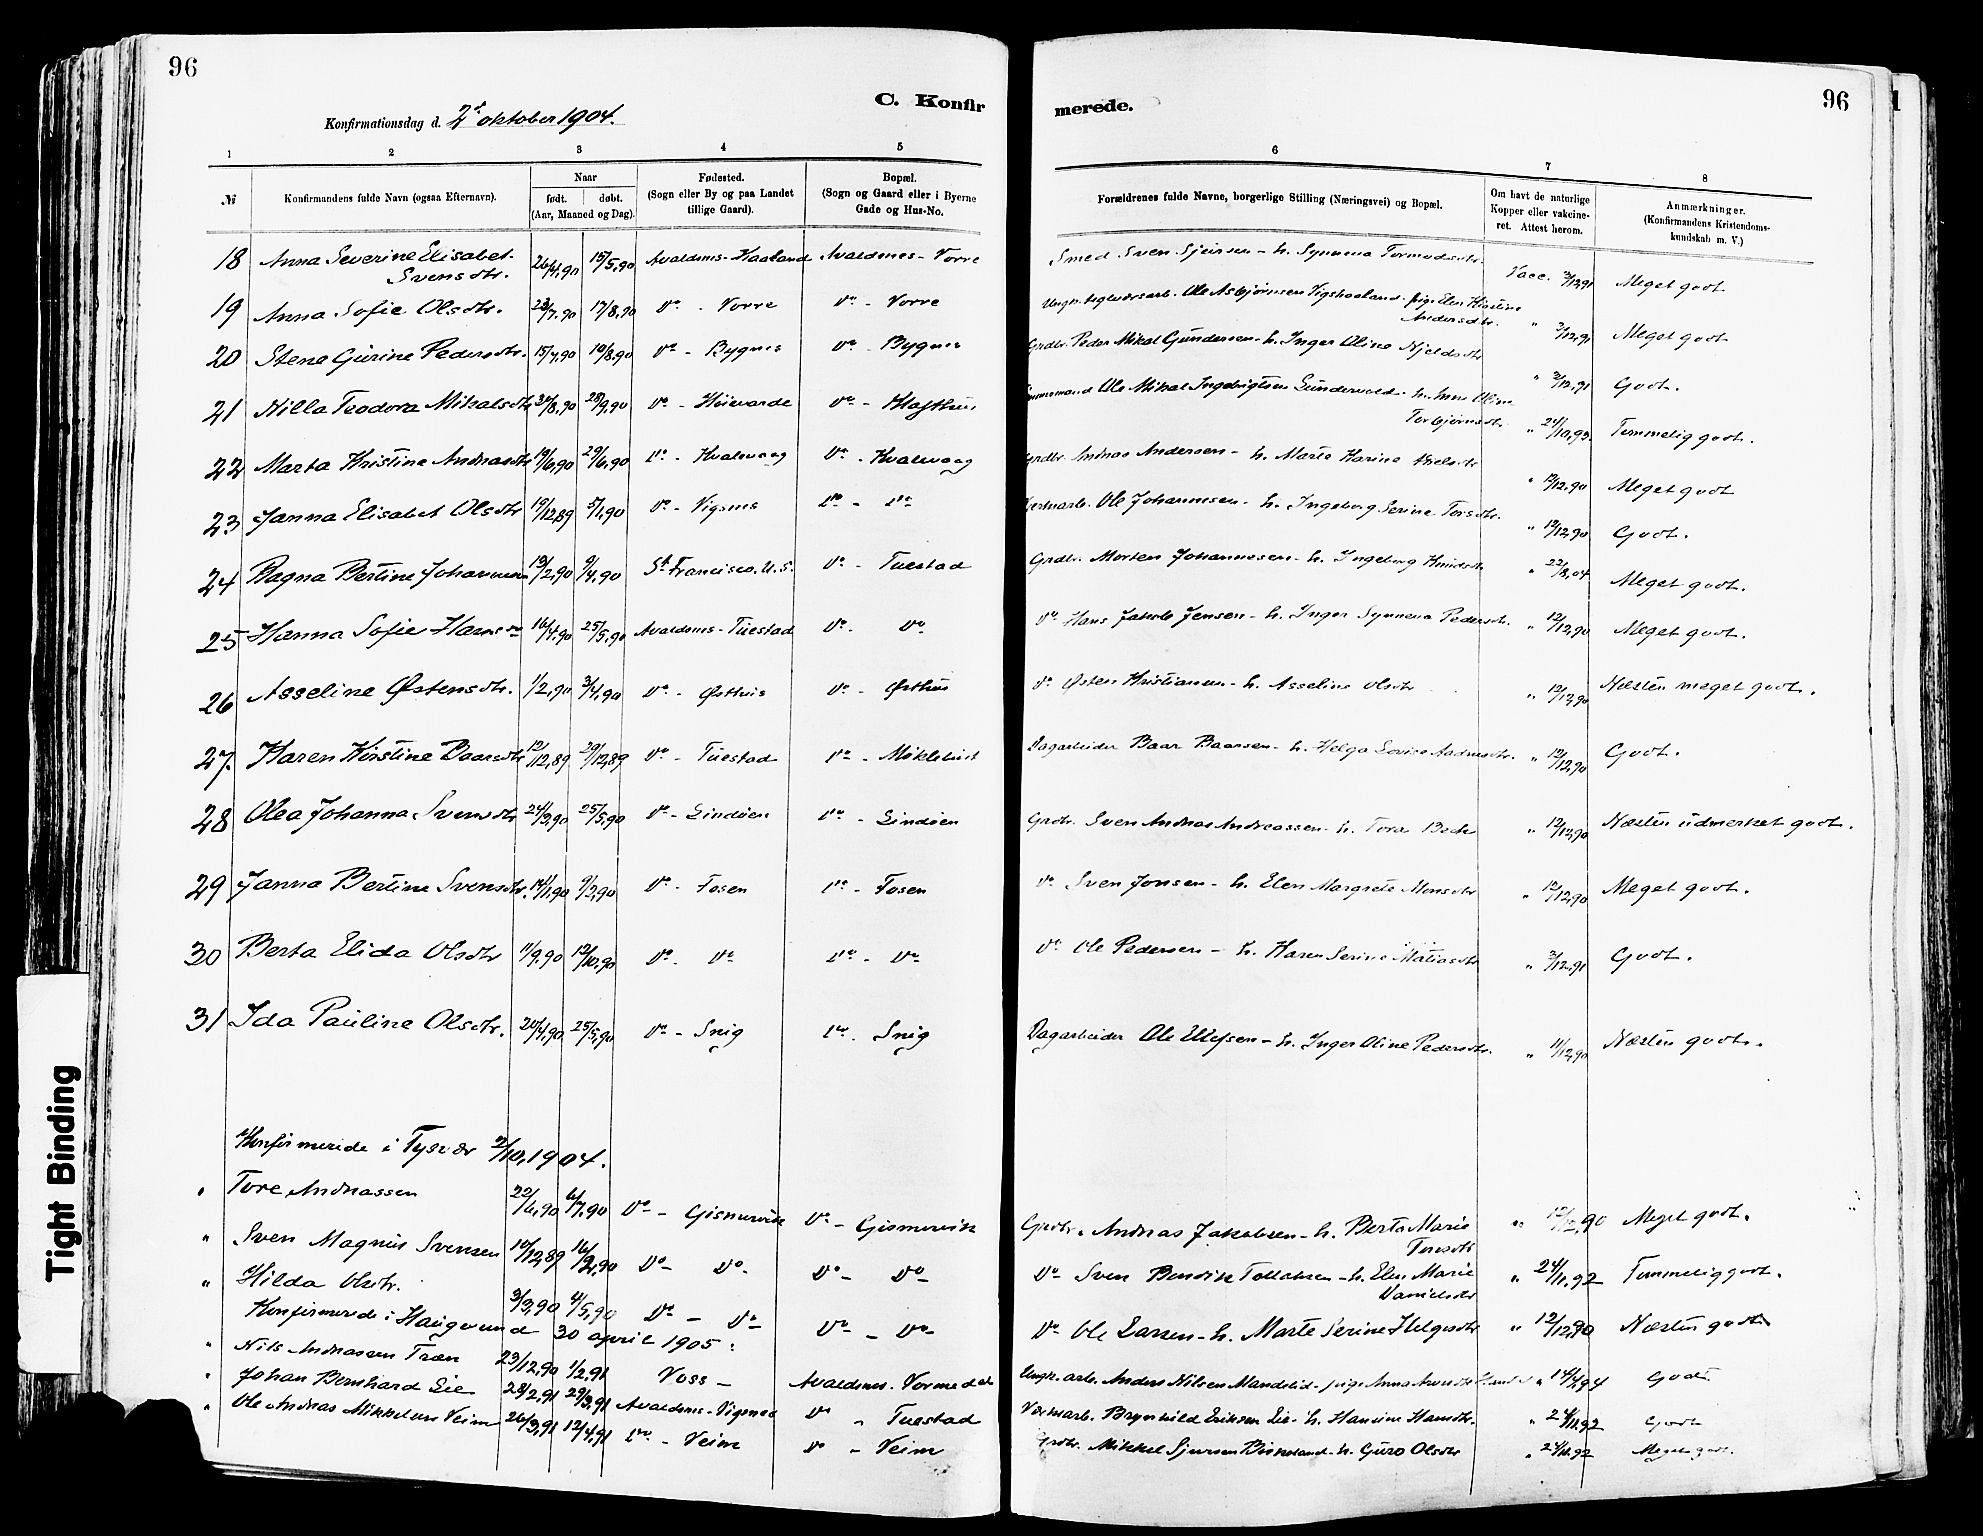 96
C. Konfir
merede.
96
Konfirmationsdag d. 2' oktober 1904.
1 2 3 4 5 6 7 8
№
Konfirmandens fulde Navn (ogsaa Efternavn).
Naar
født. døbt.
(Aar, Maaned og Dag).
Fødested.
(Sogn eller By og paa Landet
tillige Gaard).
Bopæl.
(Sogn og Gaard eller i Byerne
Gade og Hus-No.
Forældrenes fulde Navne, borgerlige Stilling (Næringsvei) og Bopæl.
Om havt de naturlige
Kopper eller vakcine-
ret. Attest herom.
Anmærkninger.
(Konfirmandens Kristendoms-
kundskab m. V.)
18 Anna Severine Elisabet Svensdtr. 26/4,90 15/5,90 Avaldsnes - Haaland Avaldsnes - Vorre Smed Sven Sjursen - h. Synneva Tormodsdtr. Vacc. 3/12,91 Meget godt
19 Anna Sofie Olsdtr. 28/7,90 17/8,90 do - Vorre do - Vorre Ole Asbjørnsen Vigshaaland - pige Elen Kristine Andersdtr. " 3/12,91 Meget godt
20 Stene Gurine Pedersdtr. 15/7,90 10/8,90 do - Bygnes do - Bygnes Grdbr. Peder Mikal Gundersen - h. Inger Oline Kjeldsdtr " 3/12,91 Godt.
21 Nilla Teodora Mikalsdtr 30/8,90 28/9,90 do - Høievarde do Ole Mikal Ingebrigtsen Sundervold - h. Anne Oline Torbjørnsdtr. " 24/10,93. Temmelig godt.
22 Marta Kristine Andreasdtr 19/6,90 29/6,90 do - Kvalevaag do - Kvalevaag Grdbr. Andreas Andersen - h. Marte Karine " 12/12,90 Meget godt
23 Janna Elisabet Olsdtr 19/12,89 5/1,90 do - Vigsnes do - do Verksarb. Ole Johannesen - h. Ingeborg Serine Torsdtr. " 12/12,90 Godt.
24 Ragna Bertine Johannesen 13/2,90 9/4,90 St. Francisco. U.S. do - Tuestad Grdbr. Morten Johannesen - h. Ingeborg " 22/8,04 Meget godt.
25 Hanna Sofie Hansdtr 16/4,90 25/5,90 Avaldsnes - Tuestad do - do do Hans Jakob Jensen - h. Inger Synneva Pedersdtr. " 12/12,90 Meget godt.
26 Asseline Østensdtr. 1/2,90 3/4,90 do - Østhus do - Østhus do Østen Kristiansen - h. Asseline Olsdtr " 12/12,90 Næsten meget godt.
27. Karen Kirstine Baarsdtr 12/12,89 29/12,89 do - Tuestad do Dagarbeider Baar Baarsen - h. Helga " 12/12,90 Godt.
28 Olea Johanna Svensdtr 24/3,90 25/5,90 do - Lindøen do - Lindøen Grdbr. Sven Andreas Andreassen - h. Tora " 12/12,90 Næsten udmerket godt.
29 Janna Bertine Svensdtr. 14/1,90 9/2,90 do - Fosen do - Fosen do Sven Jonsen - h. Elen Margrete Monsdtr " 12/12,90 Meget godt.
30 Berta Elida Olsdtr 11/9,90 12/10,90 do - do do - do do Ole Pedersen - h. Karen Serine Matiasdtr " 3/12,91 Godt.
31 Ida Pauline Olsdtr. 20/4,90 25/5,90 do - Snig do - Snig Dagarbeider Ole Ellefsen - h. Inger Oline Pedersdtr. " 11/12,90 Næsten godt.
Konfirmerede i Tysvær 2/10,1904.
" Tore Andreassen 22/6,90 6/7,90 do - Gismervik do - Gismervik Grdbr. Andreas Jakobsen - h. Berta Marie Toresdtr " 12/12,90 Meget godt.
" Sven Magnus Svensen 10/12,89 16/2,90 do - do do - do do Sven Bendik Tollaksen - h. Elen Marie Danielsdtr " 24/11,92 Temmelig godt.
" Hilda Olsdtr. 3/3,90 4/5,90 do - do do - do do Ole Larsen - h. Marte Serine Helgesdtr " 12/12,90 Næsten godt
Konfirmerede i Haugesund 30 april 1905:
" Nils Andreassen Træn 23/12,90 1/2,91 Voss - Avaldsnes - Ungk. arb. Anders Nilsen Mandelid - pige Anna " 14/4,94 Godt
" Johan Bernhard Lie 28/2,91 29/3,91 Avaldsnes - Vigsnes do - Tuestad Verksarb. Brynhild Eriksen Lie - h. Hansine Hansdtr. " 24/11,92 Godt
" Ole Andreas Mikkelsen Veim 26/3,91 12/4,91 do - Veim do - Veim Grdbr. Mikkel Sjursen Birkeland - h. Guro Olsdtr " 24/11,92 Meget godt.
Tight Binding